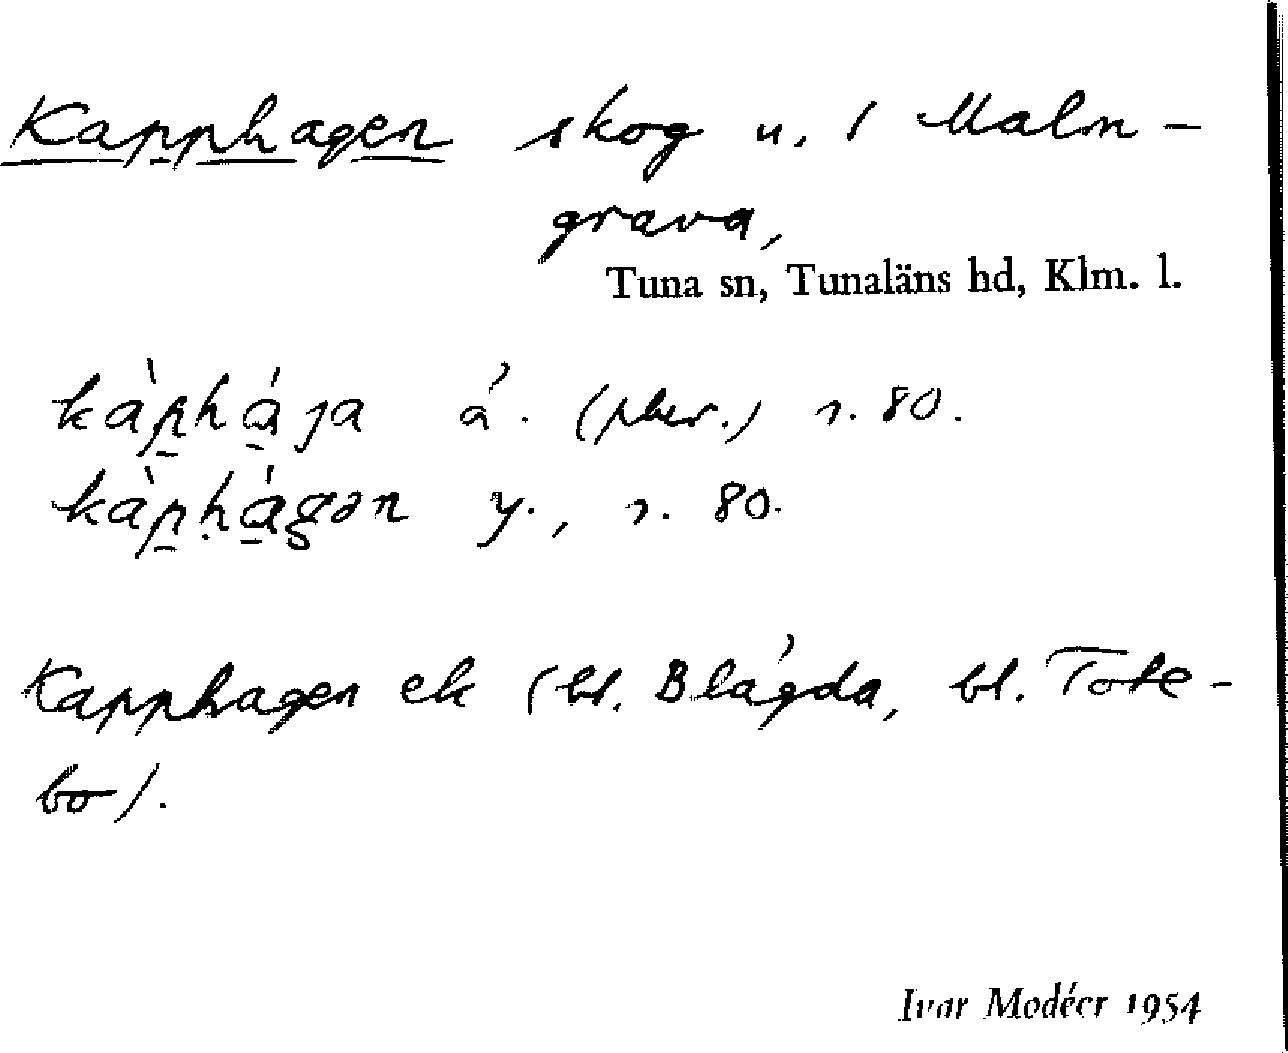 Kapphagen skog u. / Malm-
grava,
Tuna sn, Tunaläns hd, Klm. l.
kàp̠há̠ja á. (plur.) s. 80.
kàp̠ḥá̠gən y., s. 80.
Kapphagen ek (bl. Blågda, bl. Tote-
bo).
Ivar Modéer 1954